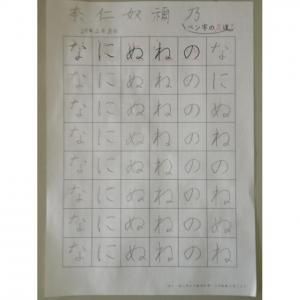 奈 仁 奴 禰 乃
ペン字の
なにぬねのな
なにぬねのに
なにぬねのぬ
なにぬねのね
なにぬねのの
なにぬねのな
なにぬねのに
なにぬねのぬ
なにぬねのね